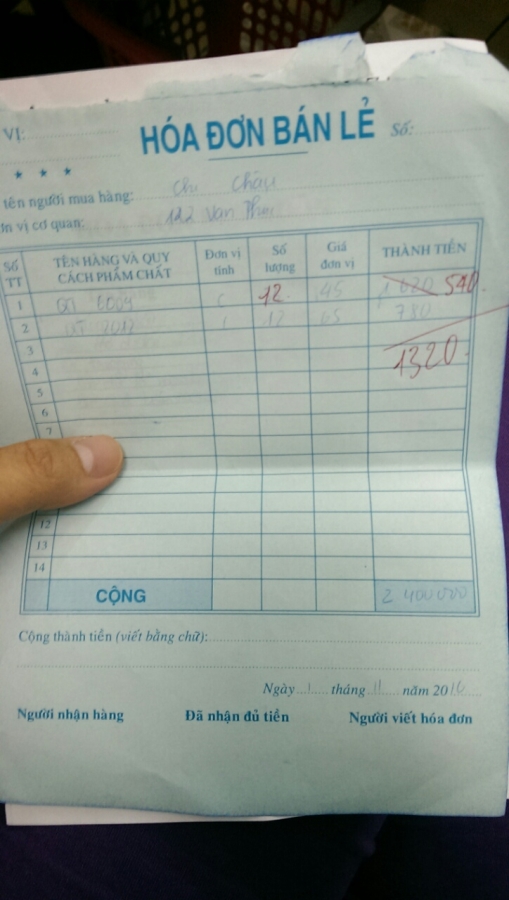 VỊ:
HÓA ĐƠN BÁN LẺ Số:
★ ★ ★
tên người mua hàng: Chị Châu
n vị cơ quan: 122 Vạn
Số TT TÊN HÀNG VÀ QUY CÁCH PHẨM CHẤT Đơn vị tính Số lượng Giá đơn vị THÀNH TIỀN
1 12 45 1 620 540
2 12 65 780
3 1320
4
5
6
7
12
13
14
CỘNG 2 400 000
Cộng thành tiền (viết bằng chữ):
Ngày 1 tháng 11 năm 2016
Người nhận hàng Đã nhận đủ tiền Người viết hóa đơn